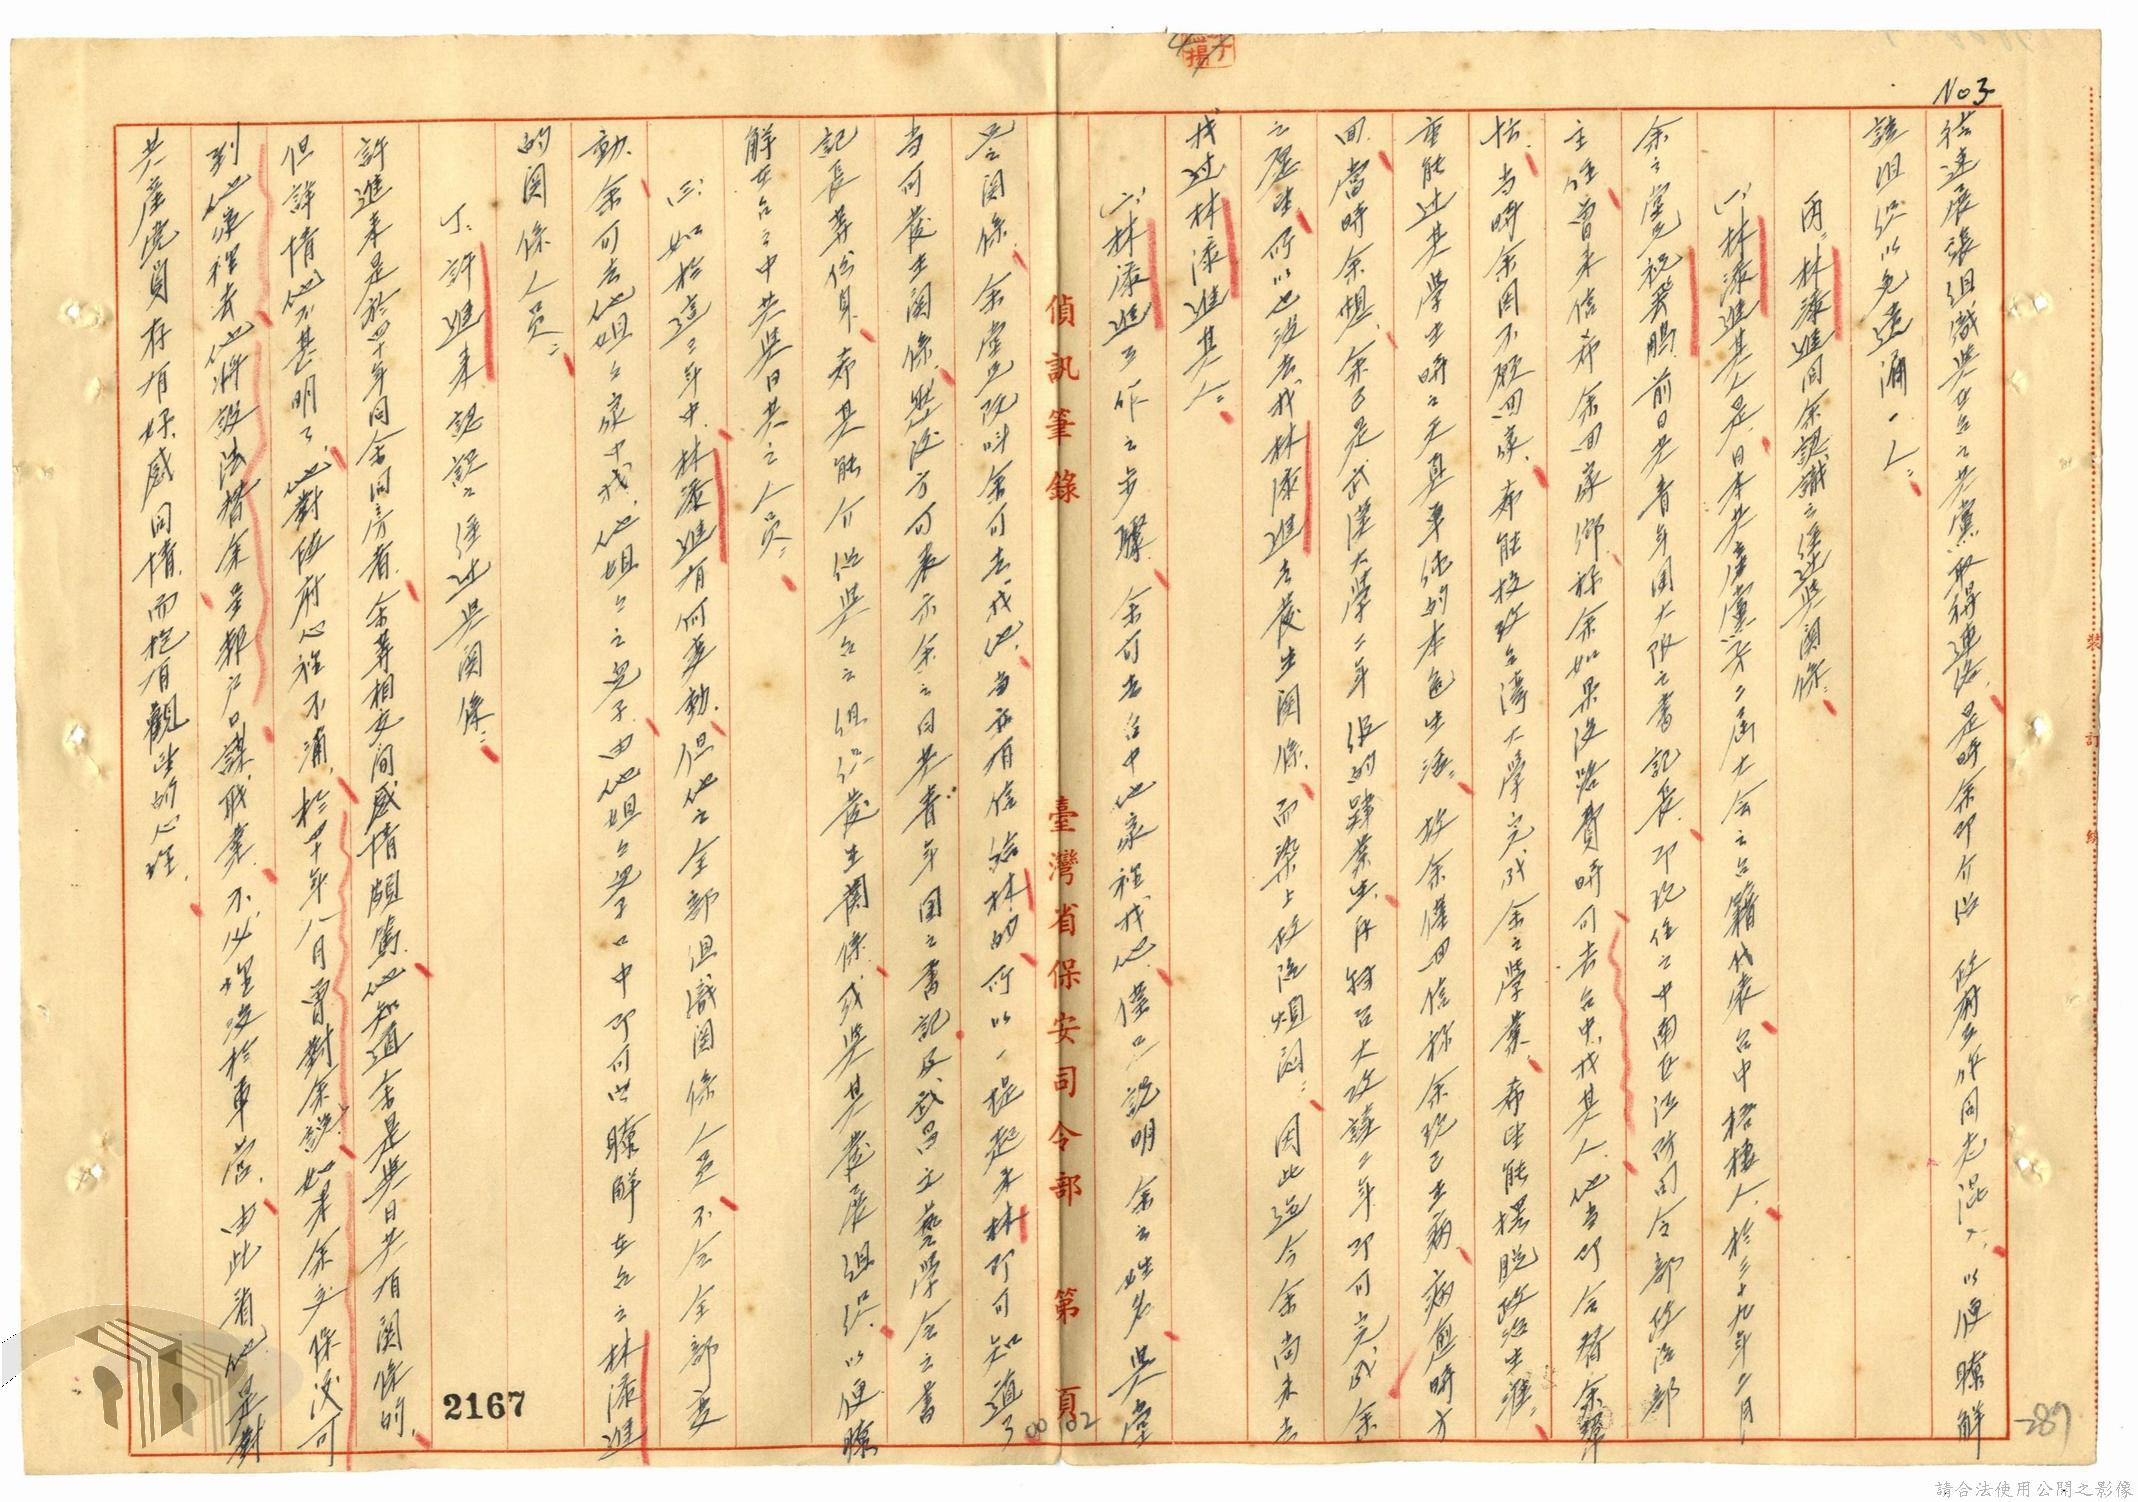 No 3
法達展張組織與在台之共黨取得連絡.是時余即介紹 政府工作同志混入.以便瞭解
該組織以免遺漏一人.
丙.林添進同余認識之經過與關係.
(一)林添進其人是.日本共產黨第二屆大会之台籍代表.台中梧棲人.於三十九年二月
余之堂兄祝飛鵬.前日共青年团大阪之書記長.即現任之中南区海防司令部政治部
主任曾来信希余回家鄉.称余如果没路費時可去台中.找其人.他当即会替余籌
措.当時余因不願回家.希能投考台灣大学完成余之学業.希望能擺脱政治生涯.
重能过其学生時之天真單純的本色生活.故余僅回信称余現已生病.病愈時方
回.當時余想.余已是武漢大学二年級的肄業生.再轉台大攻讀二年即可完成余
之歷史.所以也没去找林添進去發生關係.而染上政治煩悶.因此迄今余尚未去
找过林添進其人.
(二)林添進工作之步驟.余可去台中他家裡找他.僅只說明余之姓名與堂
偵訊筆錄 臺灣省保安司令部 第 頁
兄之関係.余堂兄既叫余可去找他.当亦有信給林的.所以一提起来林即可知道了
当可發生関係.然後方可表示余之日共青年团之書記及武昌文藝學会之書
記長等份身.希其能介紹與台之組织發生關係或與其發展組织.以便瞭
解在台之中共與日共之人員.
三.如於這二年中.林添進有何變動.但他之全部組織関係人員不会全部变
動.余可去他姐台家中找.他姐台之兒子.由他姐台兒子口中即可以瞭解在台之林添進
的関係人員.
丁.許進来認識之經过與関係.
許進来是於四十年同余同房者.余等相處間感情頗篤.他知道余是與日共有関係的.
但詳情他不甚明了.他對政府心裡不滿.於四十年八月曾對余說.如果余交保後可
到他家裡去.他將設法替余呈報户口謀職業.不必埋没於軍营.由此看他是對
共產党員存有好感同情.而抱有觀望的心理.
2167
287
00102
請合法使用公開之影像
裝 訂 線